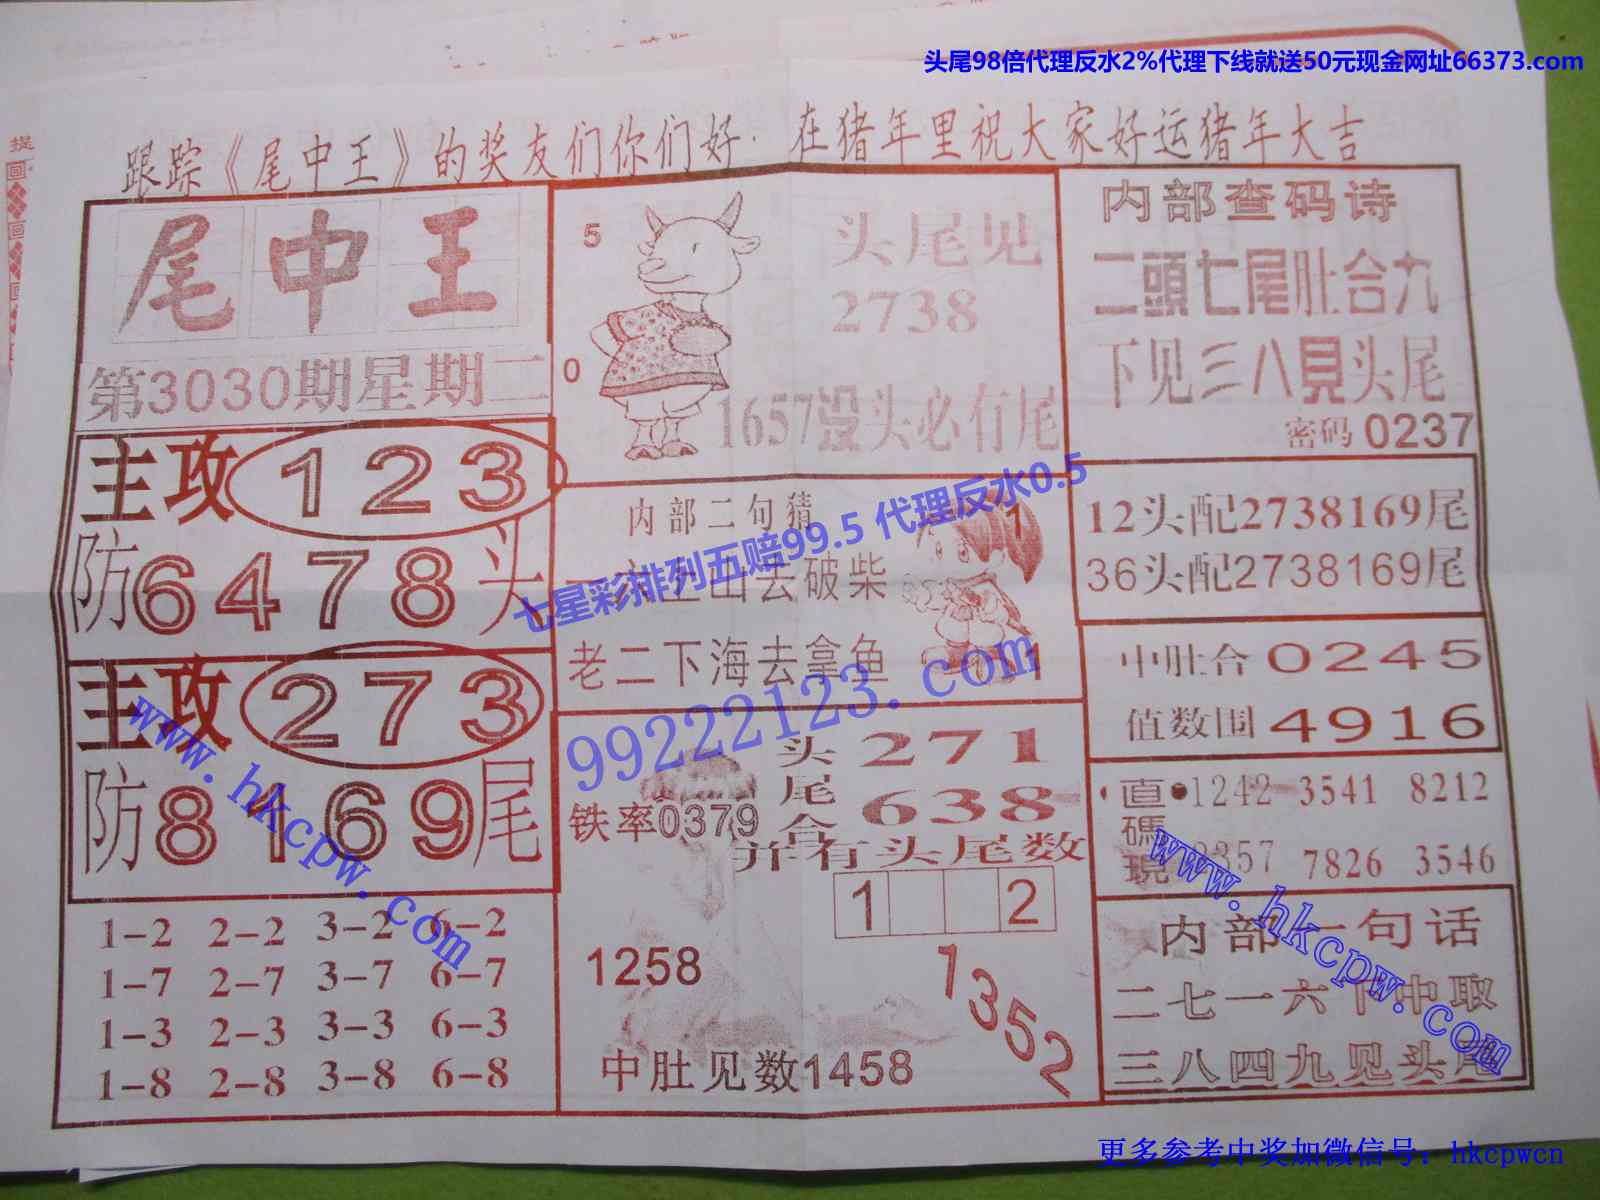 头尾98倍代理反水2%代理下线就送50元现金网址66373.com
跟踪《尾中王》的奖友们你们好·在猪年里祝大家好运猪年大吉
提
尾中王
第3030期星期二
主攻 123
防6478头
主攻 273
防8169尾
1-2 2-2 3-2 6-2
1-7 2-7 3-7 6-7
1-3 2-3 3-3 6-3
1-8 2-8 3-8 6-8
5
0
头尾见
2738
1657没头必有尾
内部二句猜
上山去破柴
老二下海去拿鱼
1
1
七星彩排列五赔99.5 代理反水0.5
99222123.com
头尾合
271
638
铁率0379
并有头尾数
1 2
1258
1352
中肚见数1458
内部查码诗
二頭七尾肚合九
下见三八見头尾
密码 0237
12头配2738169尾
36头配2738169尾
中肚合0245
值数围4916
直碼現
1242 3541 8212
357 7826 3546
内部一句话
二七一六中取
三八四九见头尾
www.hkcpw.com
www.hkcpw.com
更多参考中奖加微信号：hkcpwcn